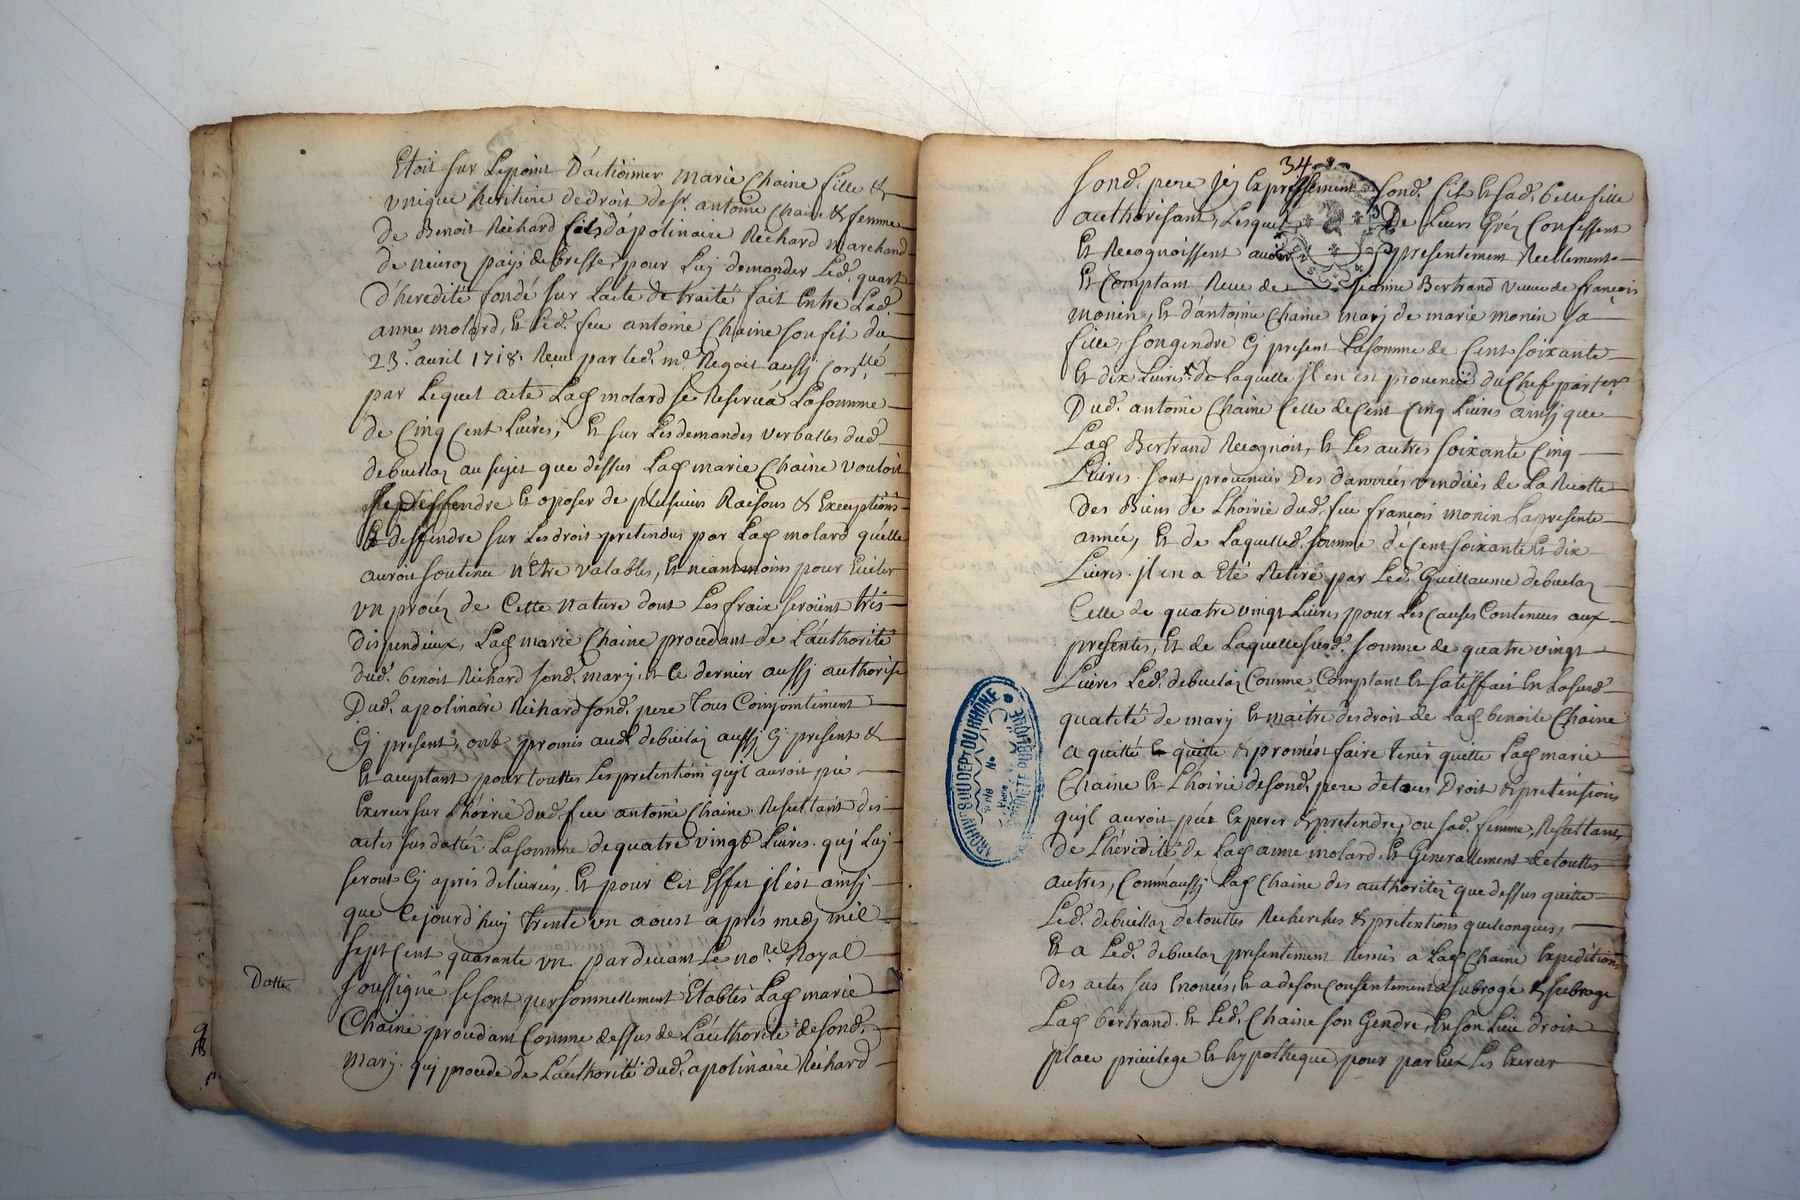 Etoit sur Lepoint D'actioñner marie Chaine fille &
unique heritiere dedroit de sr. antoine Chaine & femme
de Benoit Richard fils d'apolinaire Richard marchand
de pays debresse, pour Luy demander Led. quart
d'heredité fondé sur Lacte de traité fait Entre Lad.
anne molard, Et Led. feu antoine Chaine son fils du
23e. avril 1718. Receu par led. me. Regoit aussy
par Lequel acte Lad molard se Reserva La somme
de Cinq Cent Livres, Et sur Les demandes verballes dud
debuellas au sujet que dessus Lad marie Chaine vouloit
se deffendre Et oposer de plusieurs Raisons & Exceptions
& deffendre sur Les droit pretendus par Lad molard qu'elle
auroit soutenu n'Etre valables, Et neantmoins pour Eviter
un procés de Cette nature dont Les fraix seroient trés
dispendieux, Lad marie Chaine procedant de L'authorité
dud. benoit Richard sond. mary, et Ce dernier aussy authorisé
Dud. apolinaire Richard sond. pere Tous Conjointement
Cy present, ont promis aud debuëlaz aussy Cy present &
Et aceptant pour touttes Les pretentions qu'jl auroit pû
Exercer sur L'hoirie dud. feu antoine Chaine Resultant des
actes sus dattés La somme de quatre vingt Livres. quj Luy
seront Cy aprés delivrées, Et pour Cet Effet jl est ainsy
que Cejourd'huy trente un aoust aprés midy mil
sept Cent quarante un. par devant Le nore. Royal
Datte
soussigné se sont personnellement Etablis Lad marie
Chaine procedant Comme dessus de L'authorité de sond.
mary. quj procede de L'authorité dud. apolinaire Richard
34
sond. pere jcy Expressement sond. fils Et sad. belle fille
authorisant, Lesquels De Leurs Gréz Confessent
Et Recognoissent avoir presentement Reellement
Et Comptant Receu de jeanne Bertrand veuve de françois
monin, Et d'antoine Chaine mary de marie monin sa
fille, son gendre Cy present La somme de Cent soixante
Et dix Livres de Laquelle jl en est provenuë du Chef
Dud. antoine Chaine Celle de Cent Cinq Livres ainsj que
Lad Bertrand Recognoit, Et Les autres soixante Cinq
Livres sont provenuës Des danrrées venduës de La Recolte
des Biens de L'hoirie dud. feu françois monin La presente
année, Et de Laquelled. somme de Cent soixante Et dix
Livres. jl en a Eté Retiré par Led. Guillaume debuelaz
Celle de quatre vingt Livres pour Les Causes Contenues aux
presentes, Et de Laquelle susd. somme de quatre vingt
Livres Led. debuelaz Comme Comptant Et satisffait En La susd
qualité de mary Et maitre des droit de Lad benoite Chaine
a quitté & quitte & promést faire tenir quitte Lad marie
Chaine Et L'hoirie de sond. pere de tous Droit & pretensions
qujl auroit pû Exercer & pretendre, ou sad. femme, Resultant
De L'heredité de Lad anne molard, Et Generallement de touttes
autres, Comm'aussj Lad Chaine des authorités que dessus quitte
Led. debuellaz de touttes Recherches & pretentions quelconques,
Et a Led. debuelaz presentement Remis a Lad Chaine Expeditions
des actes sus Enoncés, Et a de son Consentement subrogé & subroge
Lad bertrand. Et Led. Chaine son Gendre, En son Lieu droit
place privilege Et hypotheque, pour par Eux Les Exercer
ARCHIVES DU DEPT DU RHONE